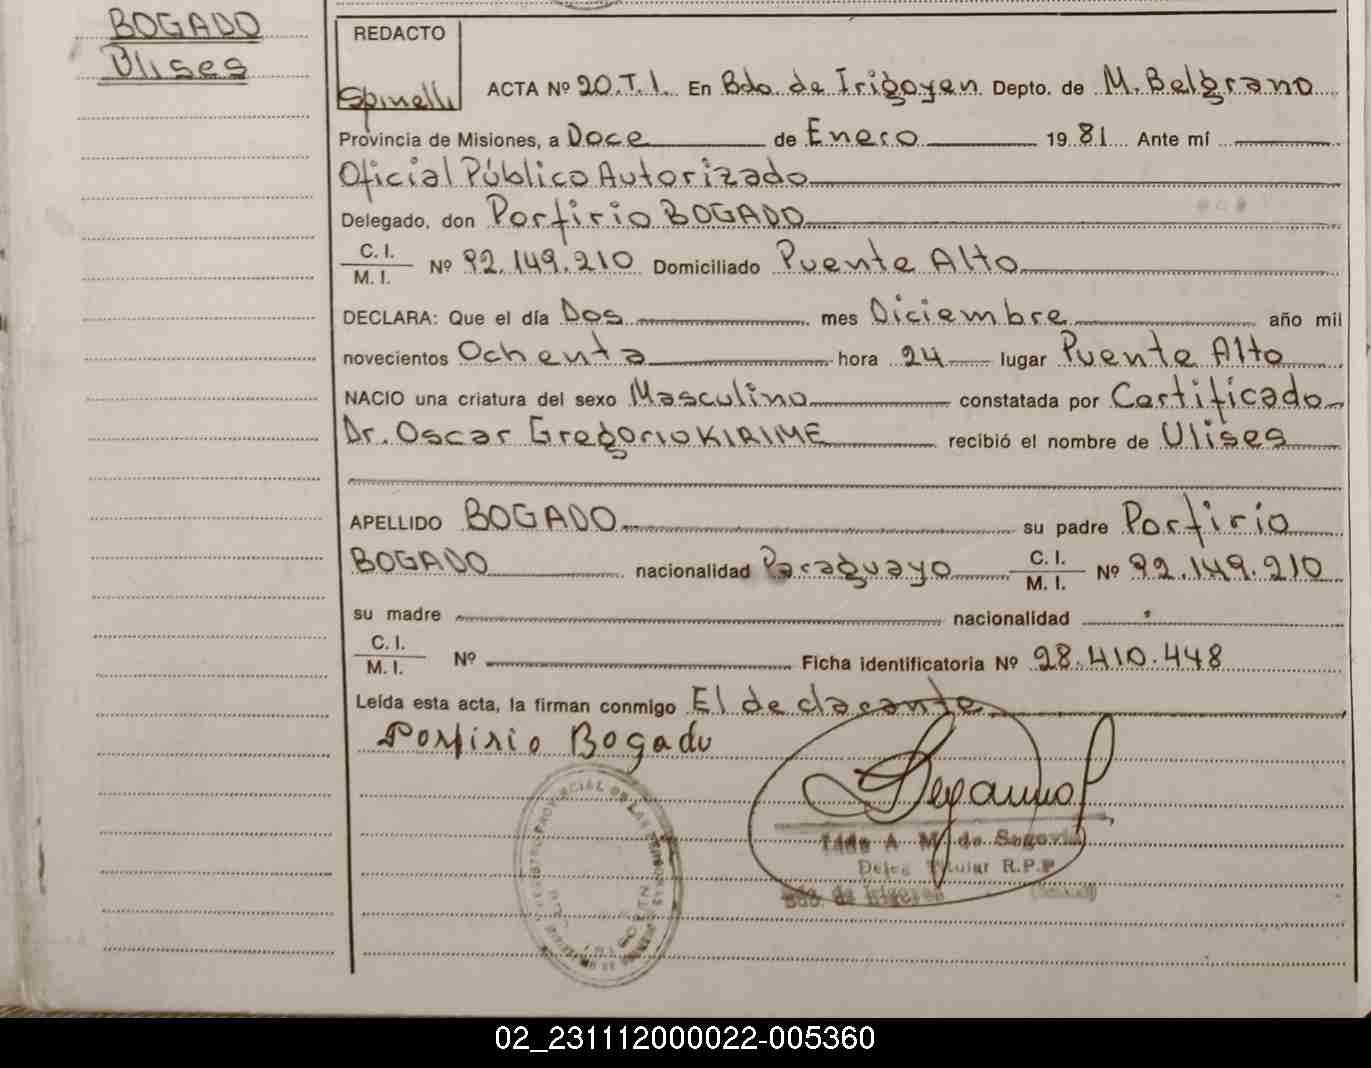 BOGADO
Ulises
REDACTO
Spinelli
ACTA Nº 20.T.1. En Bdo. de Irigoyen Depto. de M. Belgrano
Provincia de Misiones, a Doce de Enero 19 81 Ante mí
Oficial Público Autorizado
Delegado, don Porfirio BOGADO
C. I.
M. I. Nº 92.149.210 Domiciliado Puente Alto
DECLARA: Que el día Dos mes Diciembre año mil
novecientos Ochenta hora 24 lugar Puente Alto
NACIO una criatura del sexo Masculino constatada por Certificado
Dr. Oscar Gregorio KIRIME recibió el nombre de Ulises
APELLIDO BOGADO su padre Porfirio
BOGADO nacionalidad Paraguayo C. I. M. I. Nº 92.149.210
su madre nacionalidad
C. I.
M. I. Nº Ficha identificatoria Nº 28.410.448
Leída esta acta, la firman conmigo El declarante
Porfirio Bogado
A M. de Segovia
Titular R.P.P
Bdo. de Irigoyen
REGISTRO PROVINCIAL DE LAS PERSONAS
02_231112000022-005360